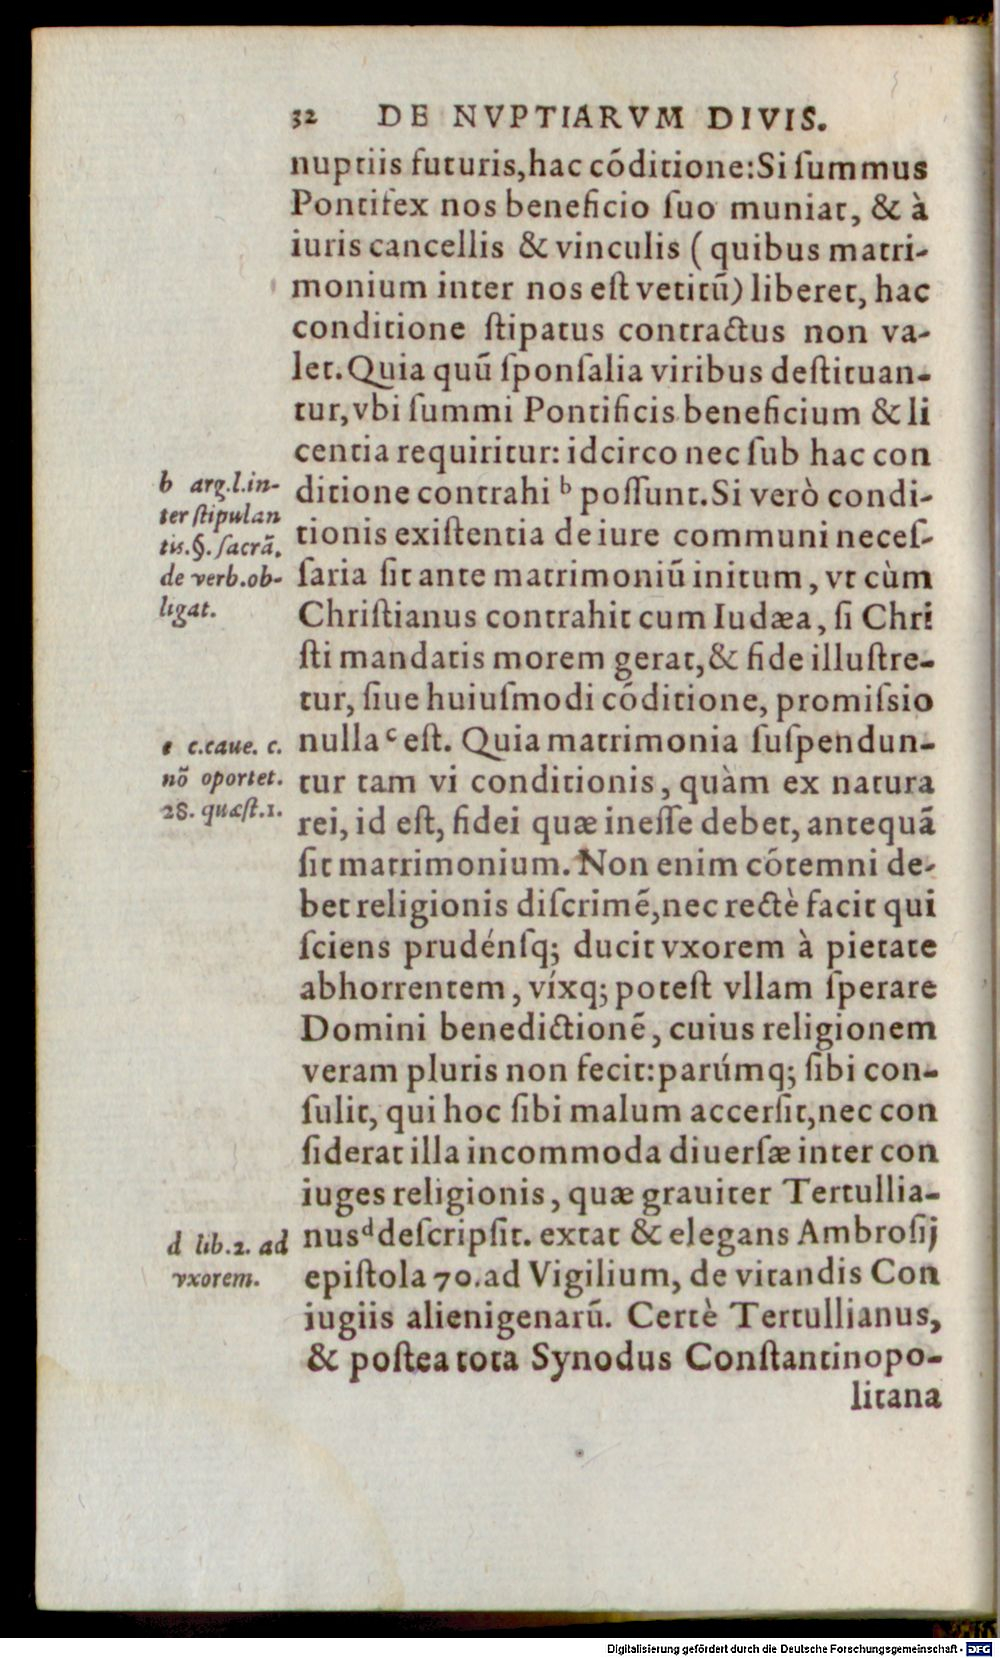 32 DE NVPTIARVM DIVIS.
nuptiis futuris, hac cōditione: Si ſummus
Pontifex nos beneficio ſuo muniat, & à
iuris cancellis & vinculis ( quibus matri-
monium inter nos eſt vetitū) liberet, hac
conditione ſtipatus contractus non va-
let. Quia quū ſponſalia viribus deſtituan-
tur, vbi ſummi Pontificis beneficium & li
centia requiritur: idcirco nec ſub hac con
ditione contrahi b poſſunt. Si verò condi-
tionis exiſtentia de iure communi neceſ-
ſaria ſit ante matrimoniū initum, vt cùm
Chriſtianus contrahit cum Iudæa, ſi Chri
ſti mandatis morem gerat, & fide illuſtre-
tur, ſiue huiuſmodi cōditione, promiſsio
nulla c eſt. Quia matrimonia ſuſpendun-
tur tam vi conditionis, quàm ex natura
rei, id eſt, fidei quæ ineſſe debet, antequā
ſit matrimonium. Non enim cōtemni de-
bet religionis diſcrimē, nec rectè facit qui
ſciens prudénſq; ducit vxorem à pietate
abhorrentem, víxq; poteſt vllam ſperare
Domini benedictionē, cuius religionem
veram pluris non fecit: parúmq; ſibi con-
ſulit, qui hoc ſibi malum accerſit, nec con
ſiderat illa incommoda diuerſæ inter con
iuges religionis, quæ grauiter Tertullia-
nus d deſcripſit. extat & elegans Ambroſij
epiſtola 70. ad Vigilium, de vitandis Con
iugiis alienigenarū. Certè Tertullianus,
& poſtea tota Synodus Conſtantinopo-
litana
b arg. l. in-
ter ſtipulan
tis. §. ſacrā.
de verb. ob-
ligat.
c c. caue. c.
nō oportet.
28. quæſt. 1.
d lib. 2. ad
vxorem.
Digitalisierung gefördert durch die Deutsche Forschungsgemeinschaft - DFG